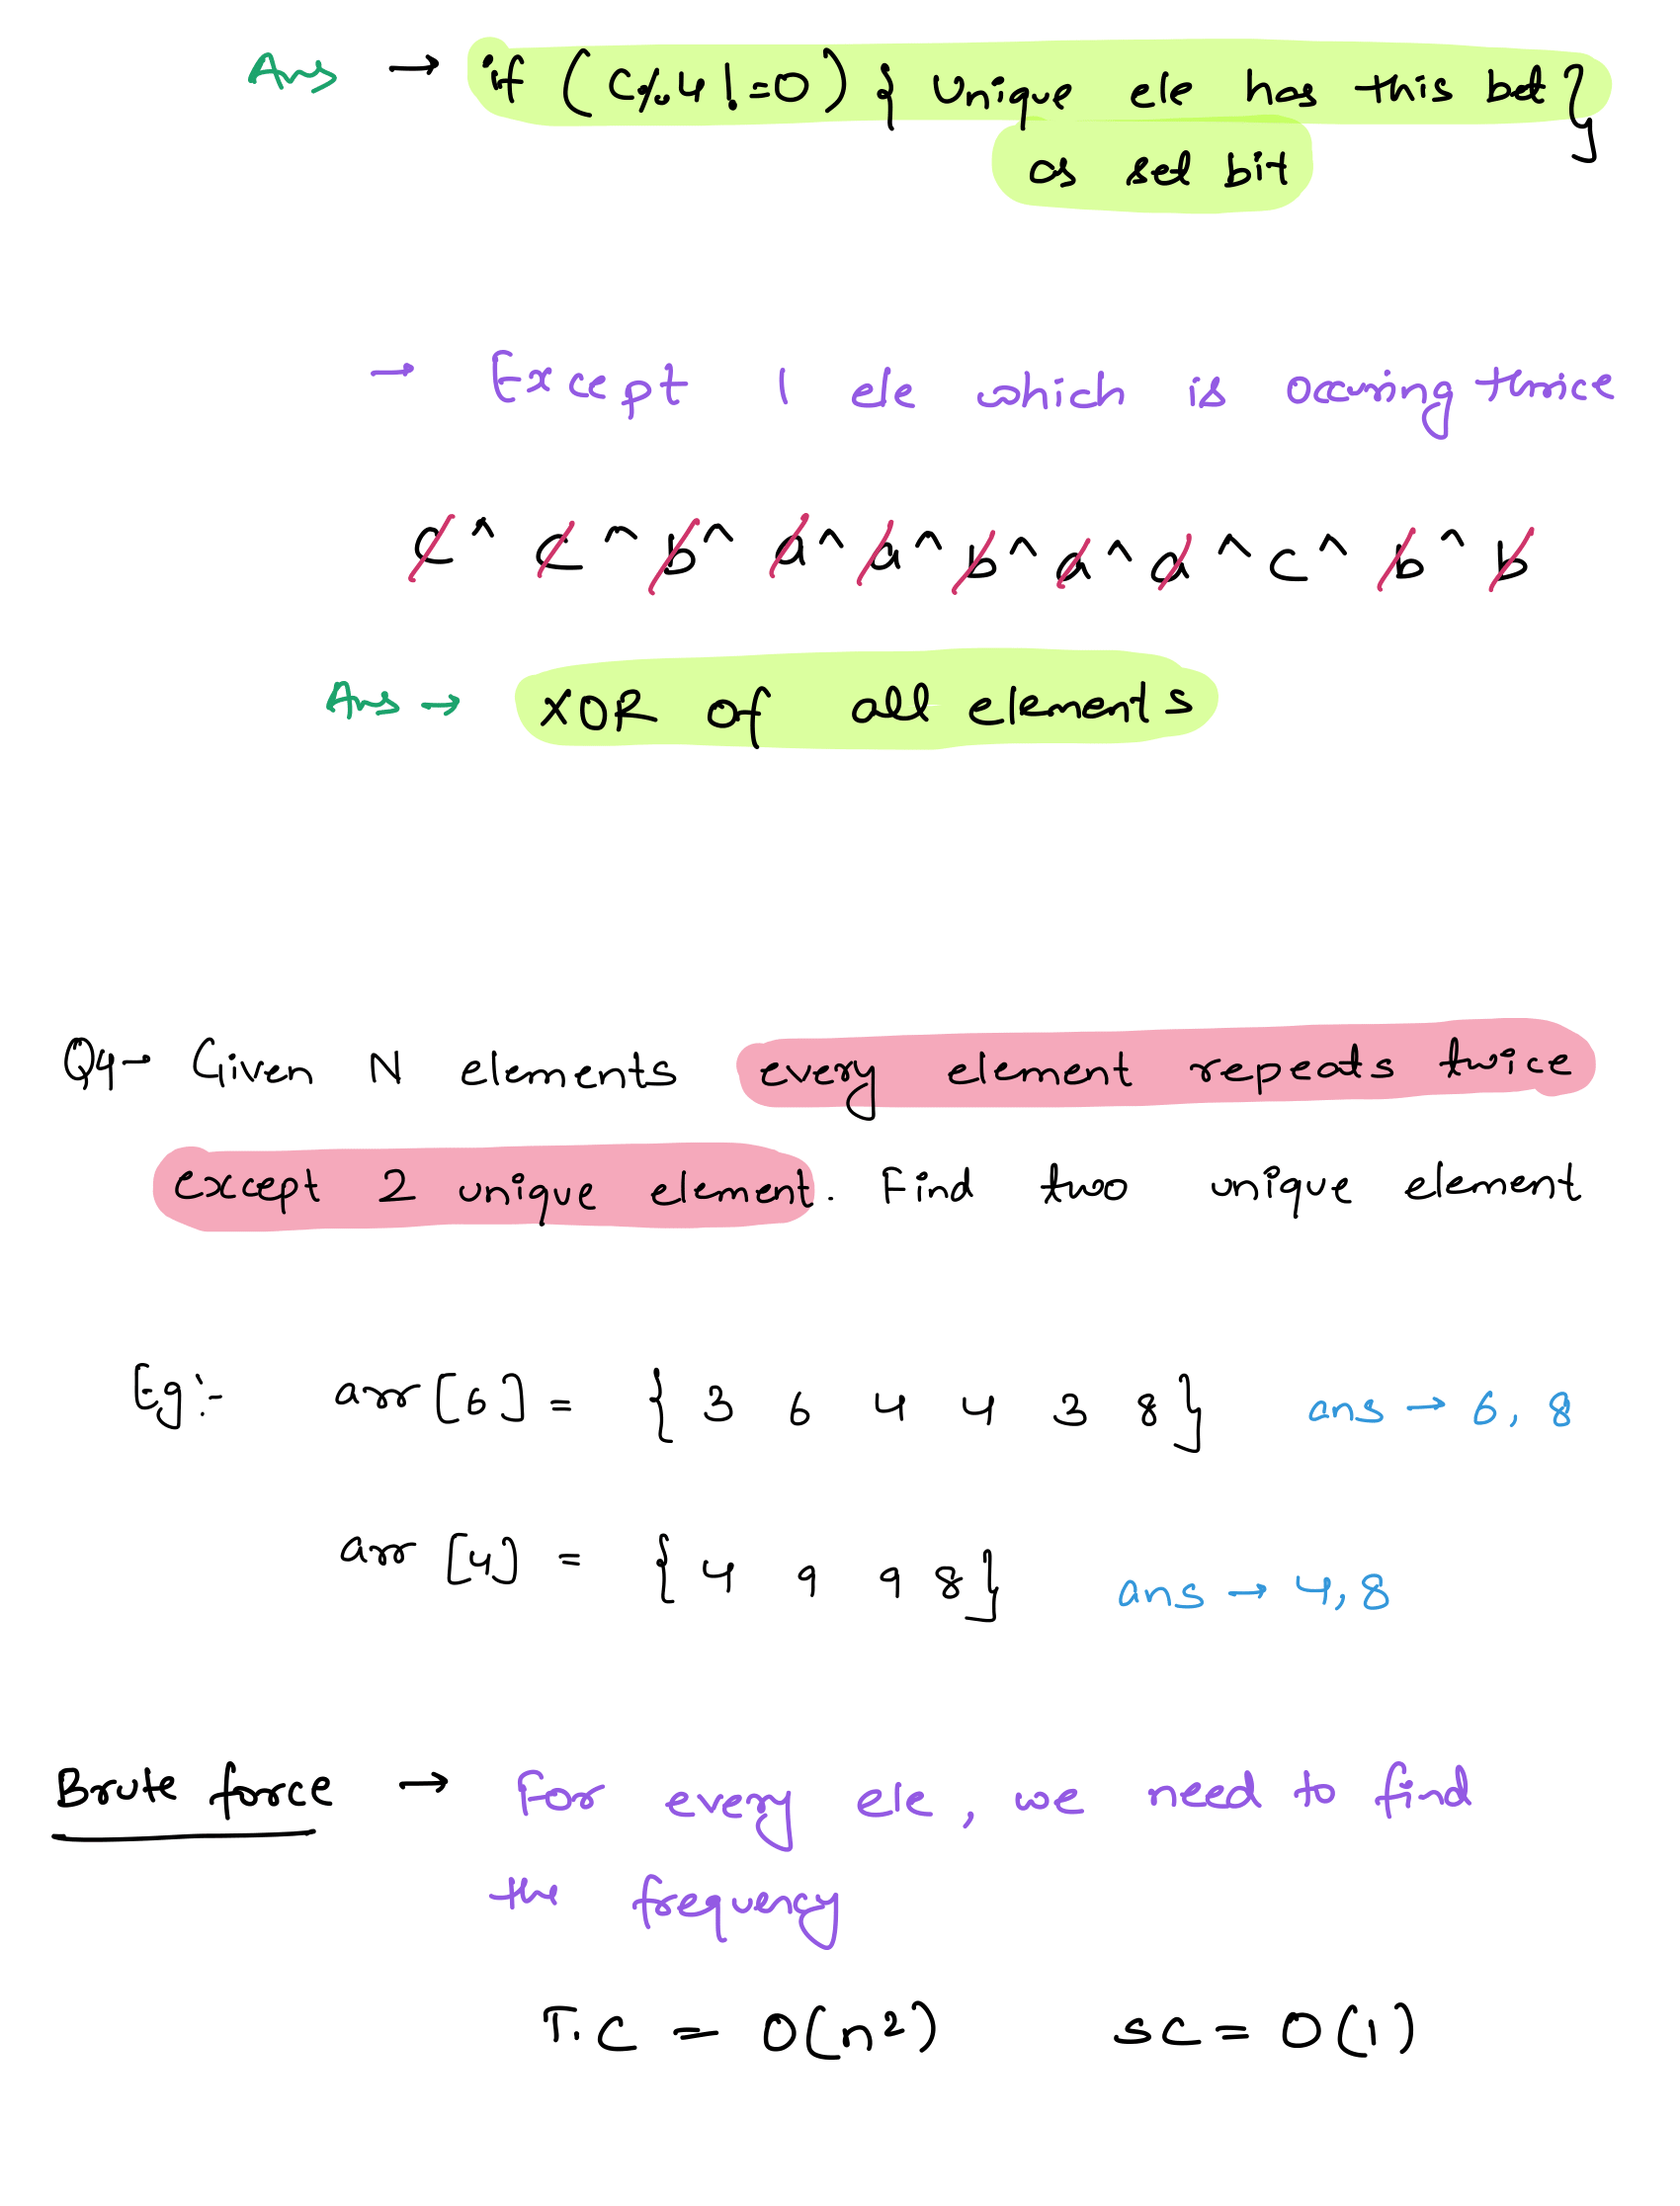 Ans → if (c%4!=0) { Unique ele has this bet }
as set bit
→ Except 1 ele which is occuring thrice
c ^ c ^ b ^ a ^ a ^ b ^ a ^ a ^ c ^ b ^ b
Ans → XOR of all elements
Q4- Given N elements every element repeats twice
except 2 unique element. Find two unique element
Eg:- arr[6] = { 3 6 4 4 3 8 } ans → 6, 8
arr [4] = { 4 9 9 8 } ans → 4, 8
Brute force → For every ele, we need to find
the frequency
T.C = O(n²) SC = O(1)